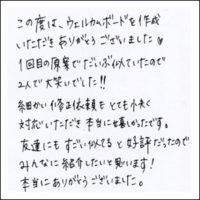 この度は、ウェルカムボードを作成
いただきありがとうございました♥
1回目の原案でだいぶ似ていたので
2人で大笑いでした!!
細かい修正依頼もとても小快く
対応いただき本当に嬉しかったです。
友達にもすごい似てると好評だったので
みんなに紹介したいと思います!
本当にありがとうございました。